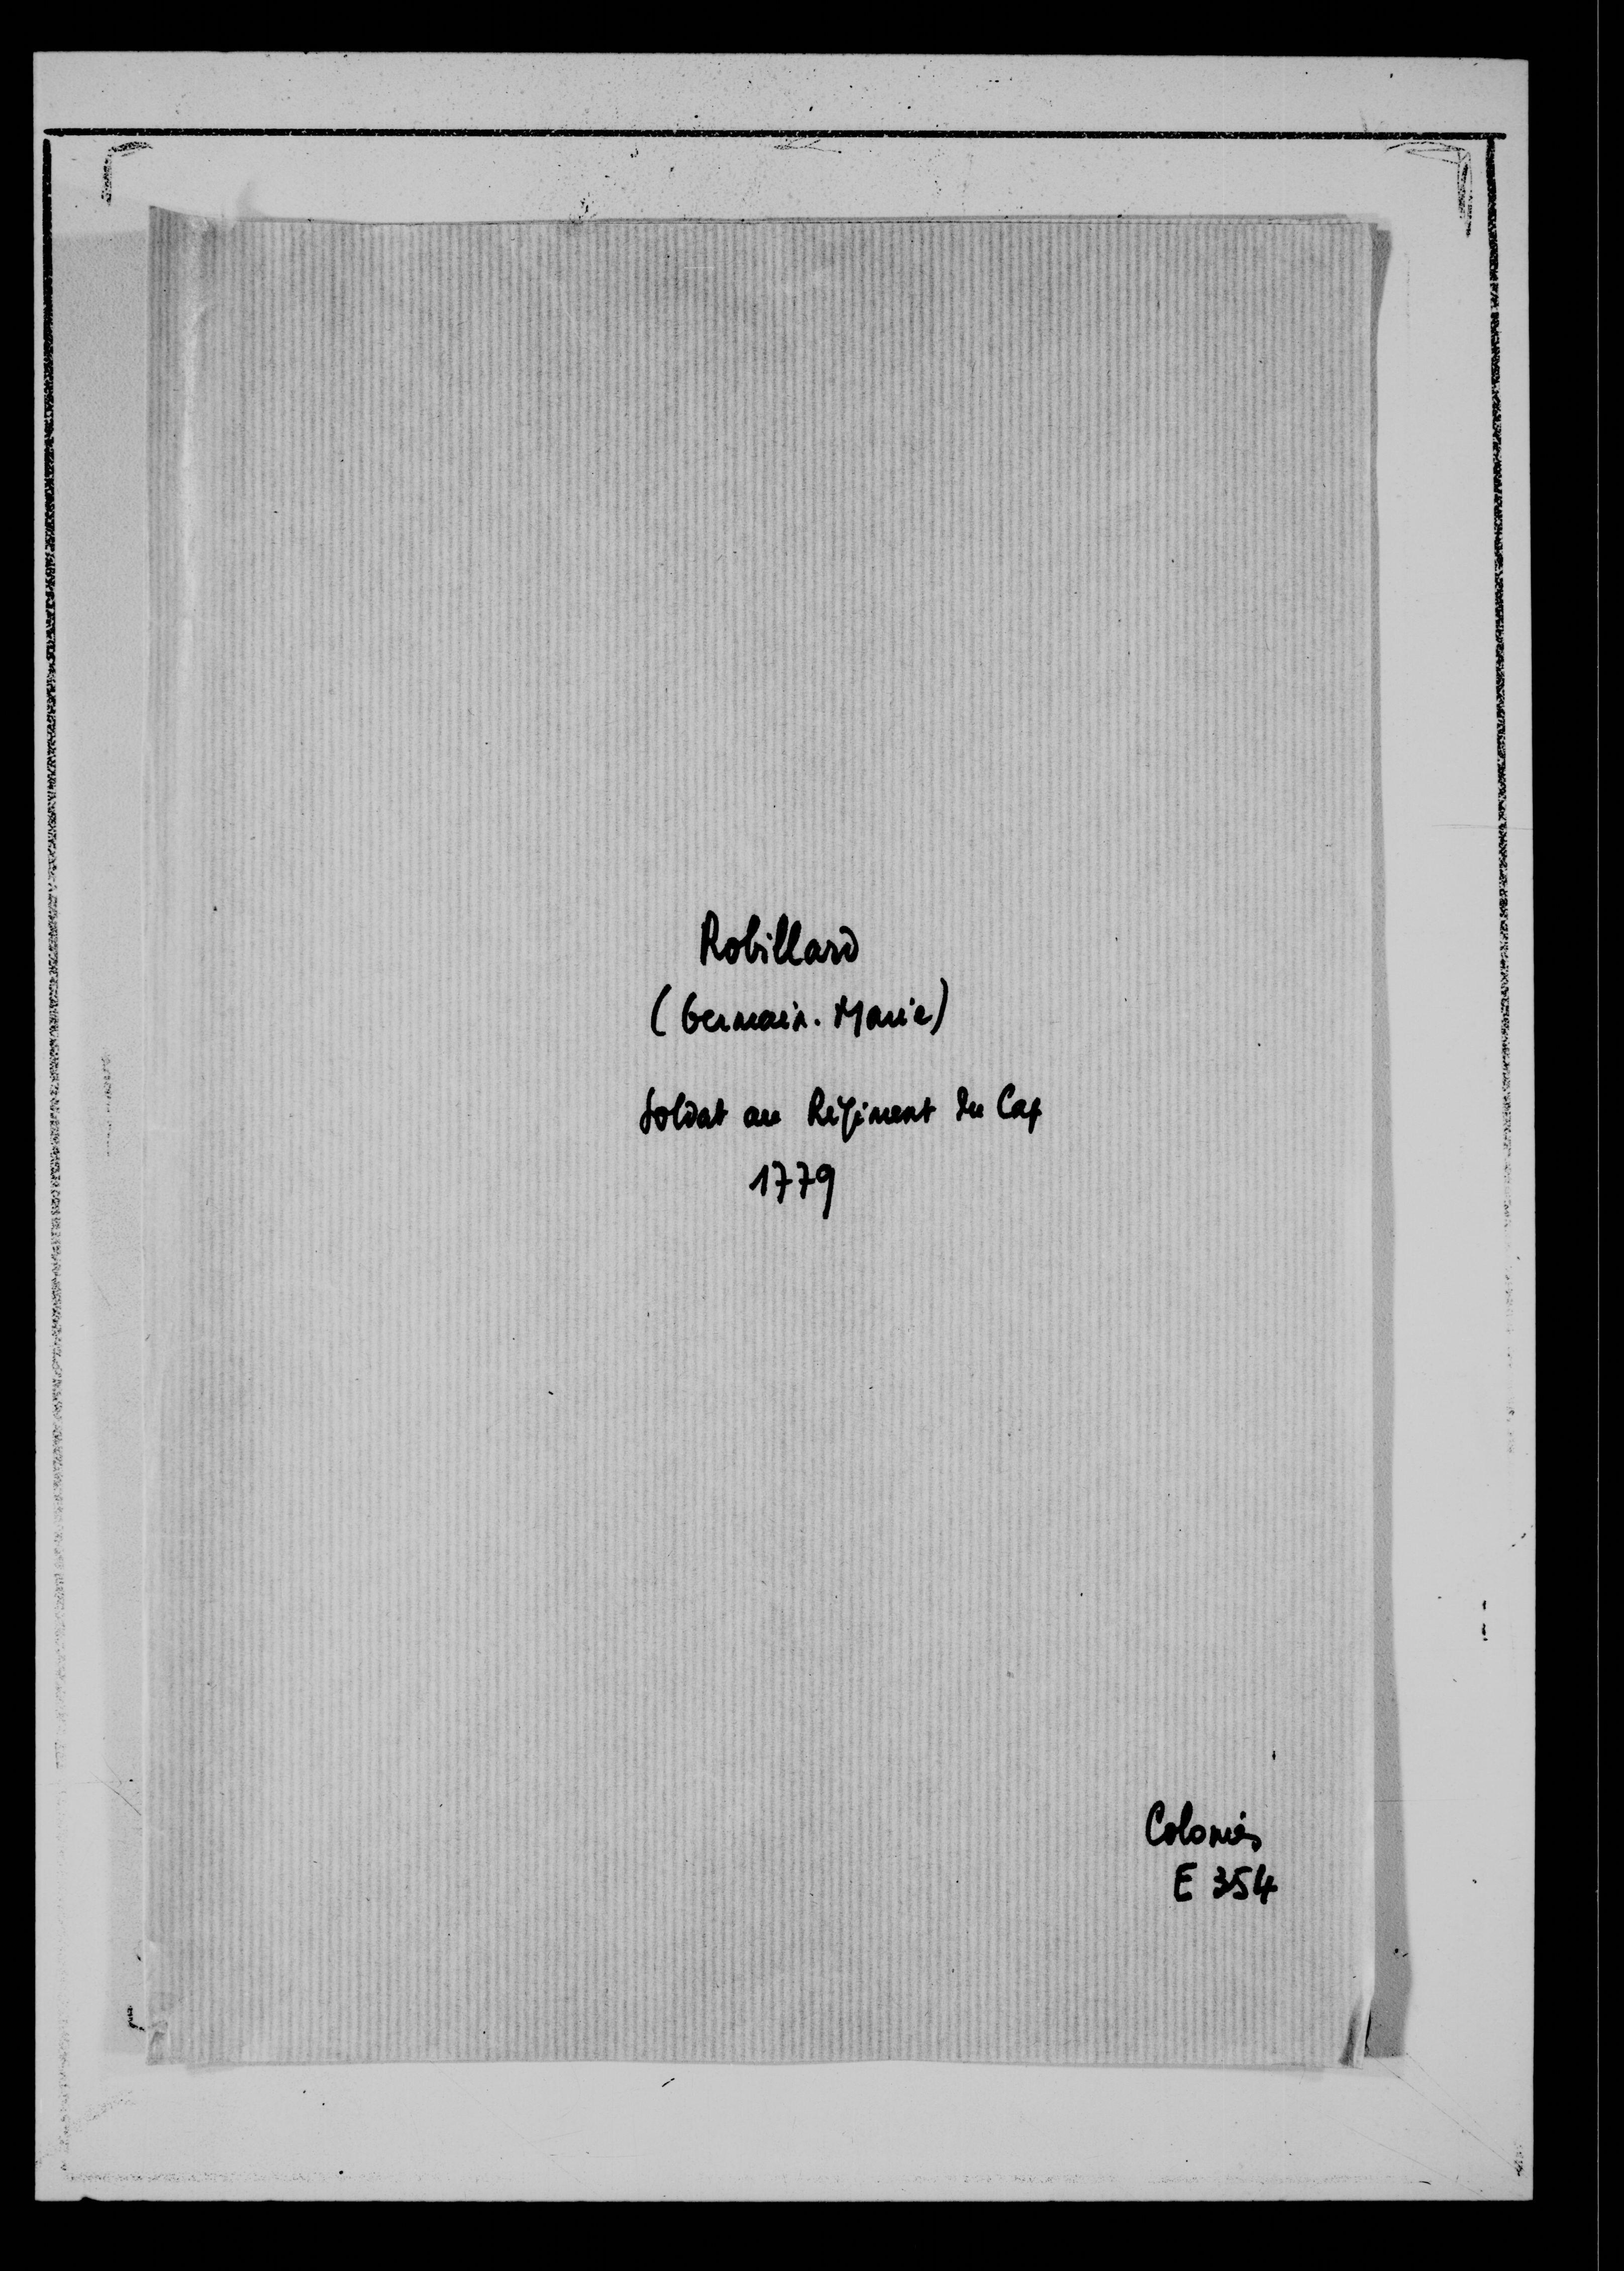 Robillard
(Germain. Marie)
Soldat au Régiment du Cap
1779
Colonies
E 354